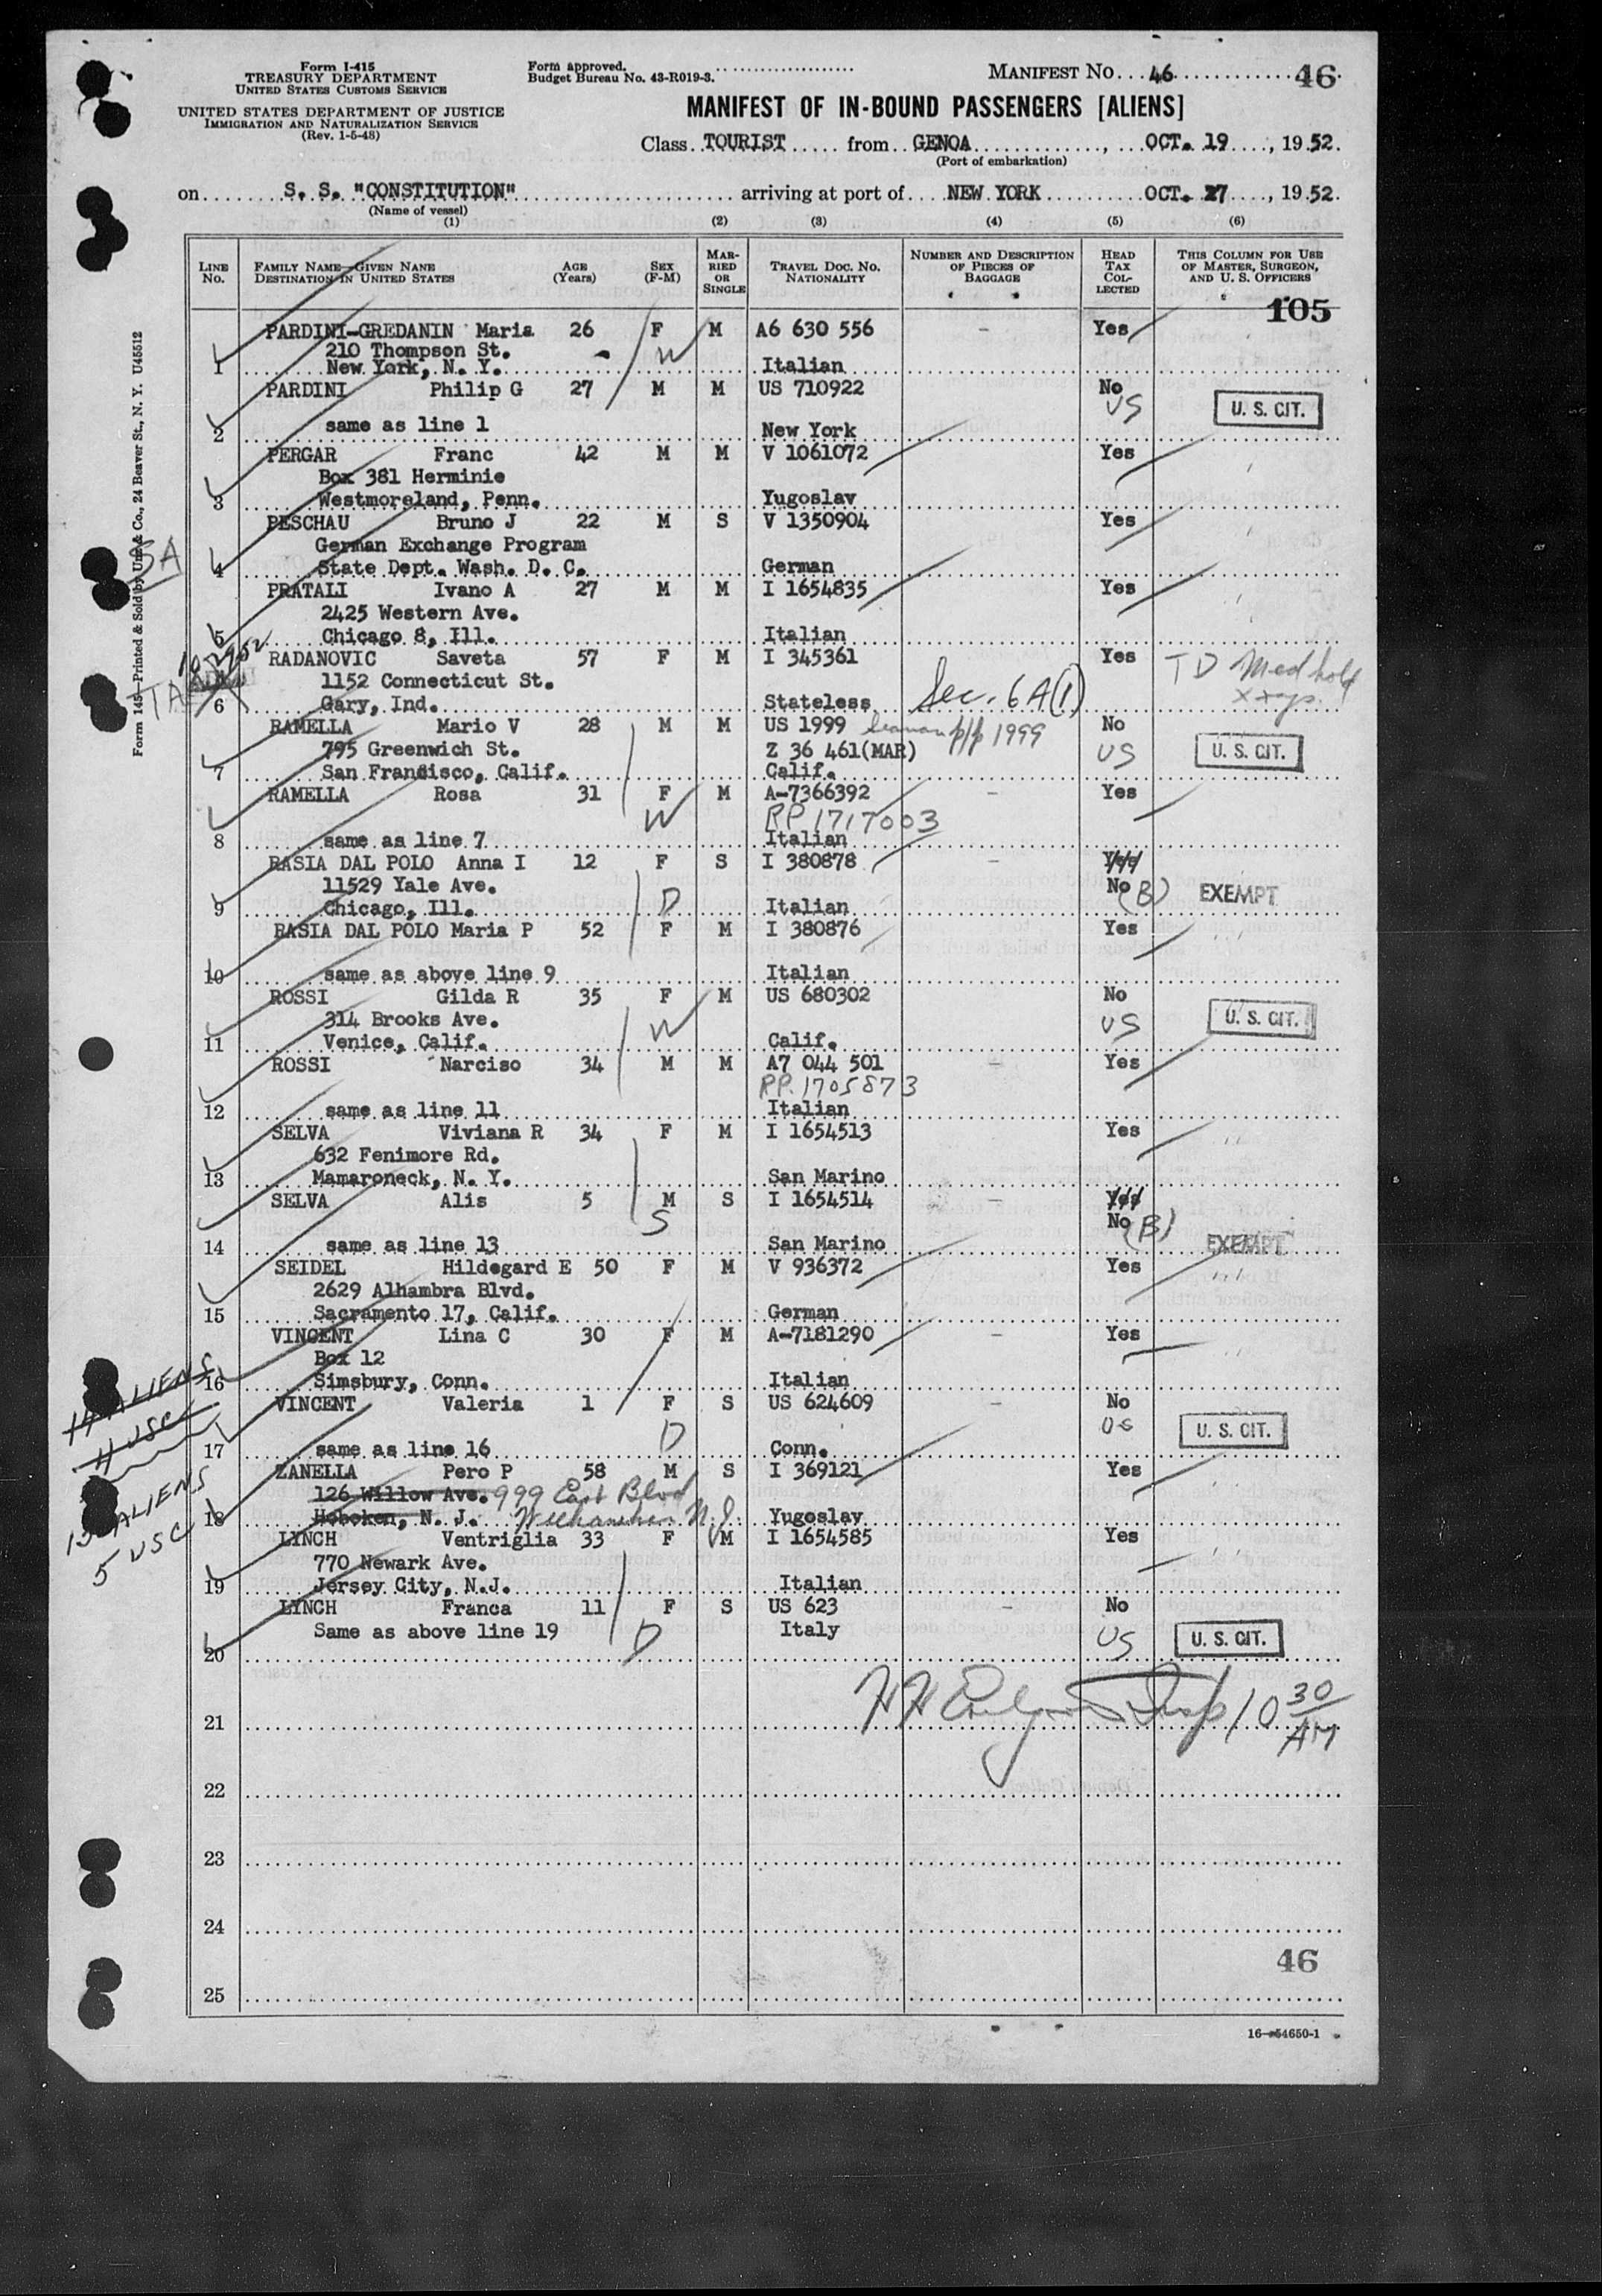 Form I-415
TREASURY DEPARTMENT
UNITED STATES CUSTOMS SERVICE
UNITED STATES DEPARTMENT OF JUSTICE
IMMIGRATION AND NATURALIZATION SERVICE
(Rev. 1-5-48)
Form approved.
Budget Bureau No. 43-R019-3.
MANIFEST NO. 46 46
MANIFEST OF IN-BOUND PASSENGERS [ALIENS]
Class TOURIST from GENOA, OCT. 19, 1952.
(Port of embarkation)
on S. S. "CONSTITUTION" arriving at port of NEW YORK OCT. 27, 1952.
(Name of vessel)
(1) (2) (3) (4) (5) (6)
LINE NO. FAMILY NAME—GIVEN NANE DESTINATION IN UNITED STATES AGE (Years) SEX (F-M) MARRIED OR SINGLE TRAVEL DOC. NO. NATIONALITY NUMBER AND DESCRIPTION OF PIECES OF BAGGAGE HEAD TAX COLLECTED THIS COLUMN FOR USE OF MASTER, SURGEON, AND U. S. OFFICERS
105
PARDINI-GREDANIN Maria 26 F M A6 630 556 – Yes
210 Thompson St. W
1 New York, N. Y. Italian
PARDINI Philip G 27 M M US 710922 No
US U. S. CIT.
2 same as line 1 New York
PERGAR Franc 42 M M V 1061072 Yes
Box 381 Herminie
3 Westmoreland, Penn. Yugoslav
PESCHAU Bruno J 22 M S V 1350904 Yes
German Exchange Program
SA
4 State Dept. Wash. D. C. German
PRATALI Ivano A 27 M M I 1654835 Yes
2425 Western Ave.
5 Chicago 8, Ill. Italian
RADANOVIC Saveta 57 F M I 345361 Yes TD Med hold
1152 Connecticut St. Sec. 6A(1) Xrays.
6 Gary, Ind. Stateless
RAMELLA Mario V 28 M M US 1999 Seaman p/p 1999 No
795 Greenwich St. Z 36 461(MAR) US U. S. CIT.
7 San Francisco, Calif. Calif.
RAMELLA Rosa 31 F M A-7366392 – Yes
W RP 1717003
8 same as line 7 Italian
RASIA DAL POLO Anna I 12 F S I 380878 – Yes
11529 Yale Ave. No (B) EXEMPT
9 Chicago, Ill. D Italian
RASIA DAL POLO Maria P 52 F M I 380876 Yes
10 same as above line 9 Italian
ROSSI Gilda R 35 F M US 680302 No
314 Brooks Ave. W US U. S. CIT.
11 Venice, Calif. Calif.
ROSSI Narciso 34 M M A7 044 501 – Yes
RP. 1705873
12 same as line 11 Italian
SELVA Viviana R 34 F M I 1654513 Yes
632 Fenimore Rd.
13 Mamaroneck, N. Y. San Marino
SELVA Alis 5 M S I 1654514 – Yes
S No (B)
14 same as line 13 San Marino EXEMPT
SEIDEL Hildegard E 50 F M V 936372 Yes
2629 Alhambra Blvd.
15 Sacramento 17, Calif. German
VINCENT Lina C 30 F M A-7181290 – Yes
Box 12
16 Simsbury, Conn. Italian
VINCENT Valeria 1 F S US 624609 – No
D US U. S. CIT.
17 same as line 16 Conn.
ZANELLA Pero P 58 M S I 369121 Yes
126 Willow Ave. 999 East Blvd
18 Hoboken, N. J. Weehawken N.J. Yugoslav
LYNCH Ventriglia 33 F M I 1654585 Yes
770 Newark Ave.
19 Jersey City, N.J. Italian
LYNCH Franca 11 F S US 623 – No
Same as above line 19 D Italy US U. S. CIT.
20
21
10 30 AM
22
23
24
25
46
14 ALIENS
4 USC
15 ALIENS
5 USC
16—54650-1
Form 145—Printed & Sold by Unz & Co., 24 Beaver St., N. Y. U45512